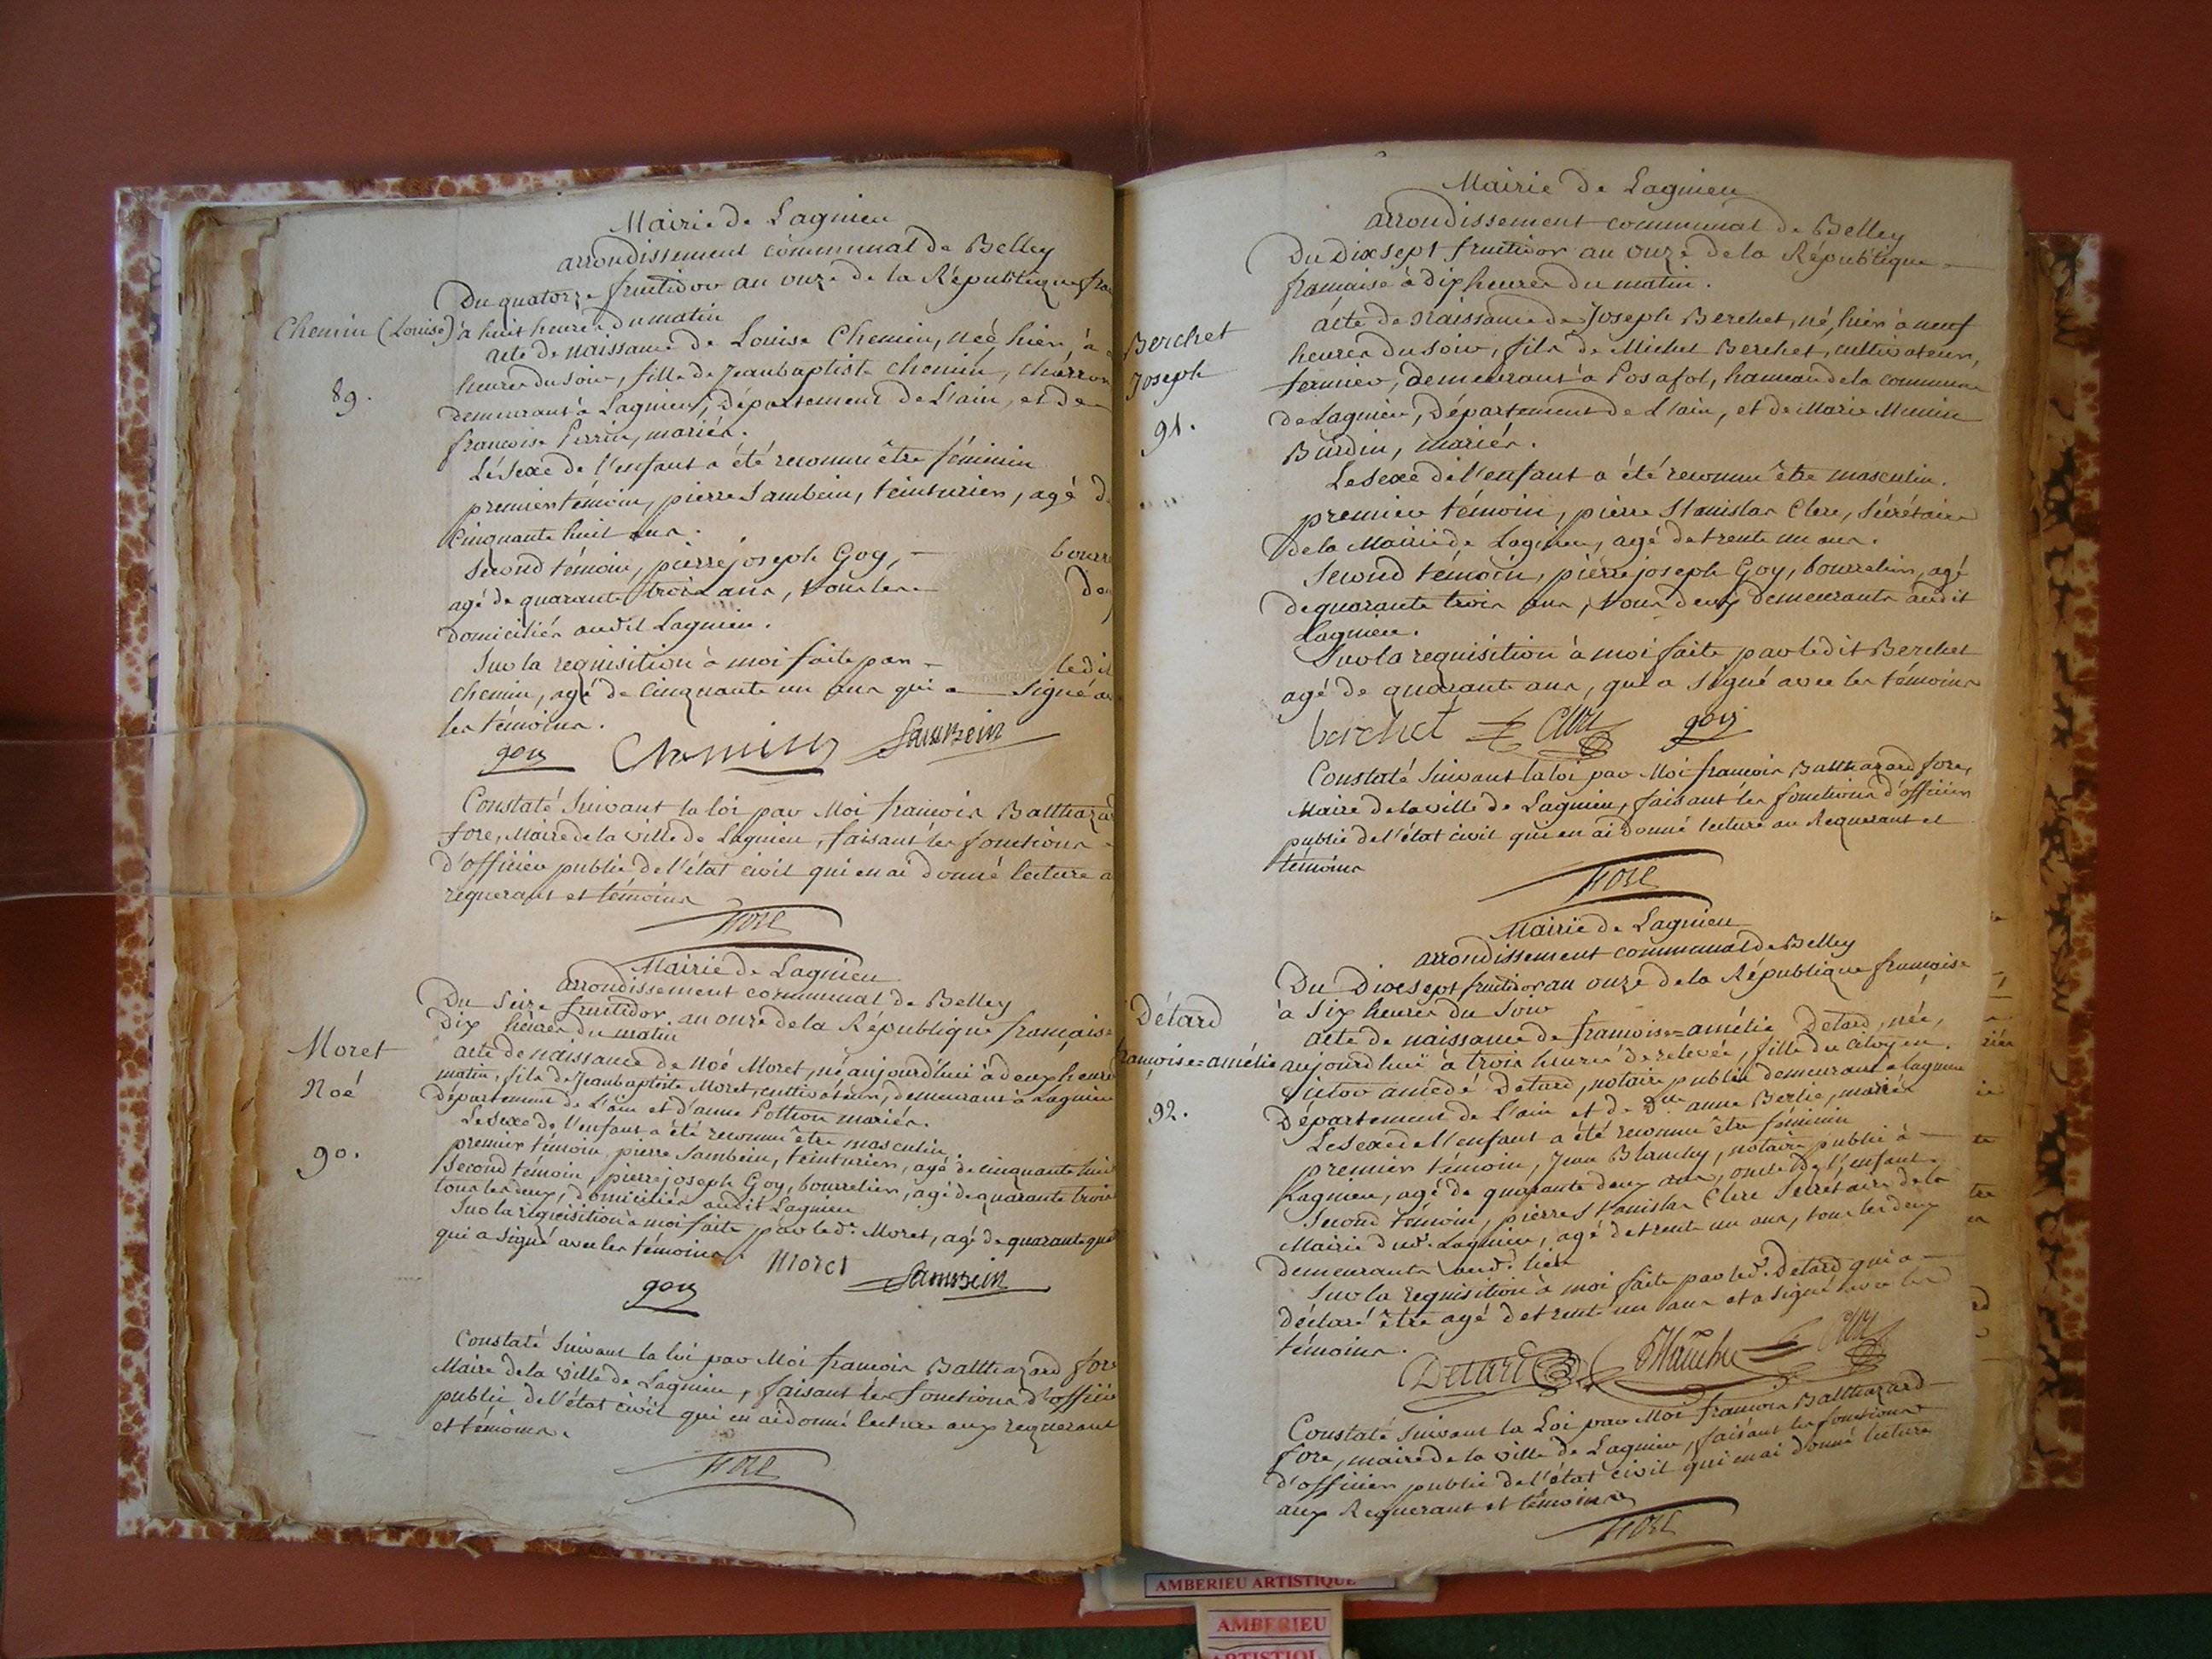 Mairie de Lagnieu
arrondissement communal de Belley
Du quatorze fructidor an onze de la République fra
Chemin (Louise) à huit heures du matin
acte de naissance de Louise Chemin, née hier, à
heures du soir, fille de Jeanbaptiste Chemin, charron
89.
demeurant à Lagnieu, Département de L'ain, et de
francoise Perrin, mariés.
Le sexe de l'enfant a été reconnu être féminin
premier témoin, pierre Sambein, teinturier, agé d
Cinquante huit ans.
Second témoin, pierre joseph Goy, bourre
agé de quarante trois ans, tous les do
domiciliés audit Lagnieu.
Sur la requisition à moi faite par ledit
Chemin, agé de Cinquante un ans qui a signé av
les témoins.
goy Chemin Sambein
Constaté Suivant la loi par Moi francois Balthazar
fore, Maire de la ville de Lagnieu, faisant les fonctions
d'officier public de l'état civil qui en ai donné lecture a
requerant et témoins
fore
Mairie de Lagnieu
arrondissement communal de Belley
Du Seize fructidor an onze de la République française
Dix heures du matin
Moret
Noé
90.
acte de naissance de Noé Moret, né aujourd'hui à deux heure
matin, fils de Jeanbaptiste Moret, cultivateur, demeurant à Lagnieu
Département de L'ain et d'anne Pothion mariés.
Le sexe de l'enfant a été reconnu être masculin.
premier témoin, pierre Sambein, teinturier, agé de cinquante hui
Second témoin, pierre joseph Goy, bourrelier, agé de quarante trois
tous les deux, domiciliés audit Lagnieu
Sur la requisition à moi faite par led. Moret, agé de quarante qua
qui a signé avec les témoins. moret
goy Sambein
Constaté Suivant la loi par Moi francois Balthazard fore
Maire de la ville de Lagnieu, faisant les fonctions d'officie
public de l'état civil qui en ai donné lecture aux requerant
et témoins.
fore
Mairie de Lagnieu
arrondissement communal de Belley
Du Dix sept fructidor an onze de la République
francaise à dix heures du matin.
Berchet
Joseph
91.
acte de naissance de Joseph Berchet, né hier à neuf
heures du soir, fils de Michel Berchet, cultivateur,
fermier, demeurant à Posafol, hameau de la commune
de Lagnieu, Département de L'ain, et de Marie
Burdin, mariés.
Le sexe de l'enfant a été reconnu être masculin.
premier témoin, pierre Stanislas Clerc, Sécrétaire
de la Mairie de Lagnieu, agé de trente un ans.
Second témoin, pierre joseph Goy, bourrelier, agé
de quarante trois ans, tous deux demeurants audit
Lagnieu.
Sur la requisition à moi faite par ledit Berchet
agé de quarante ans, qui a signé avec les témoins
berchet Clerc goy
Constaté Suivant la loi par Moi francois Balthazard fore,
Maire de la ville de Lagnieu, faisant les fonctions d'officier
public de l'état civil qui en ai donné lecture au Requerant et
témoins
fore
Mairie de Lagnieu
arrondissement communal de Belley
Du Dix sept fructidor an onze de la République française
à Six heures du Soir
Détard
francoise=amélie
92.
acte de naissance de francoise=amélie Detard, née,
aujourd'hui à trois heures de relevée, fille du Citoyen
Victor amédé Detard, notaire public demeurant a Lagnieu
Département de L'ain et de Dlle anne Berlie, mariés
Le sexe de l'enfant a été reconnu être féminin
premier témoin, Jean Blanchy, notaire public à
Lagnieu, agé de quarante deux ans, oncle de l'enfant.
Second témoin, pierre Stanislas Clerc Secrétaire de la
Mairie dud. Lagnieu, agé de trente un ans, tous les deux
demeurants aud. lieu
Sur la requisition à moi faite par led. Detard qui a
déclaré être agé de trente un ans et a signé avec les
témoins.
Detard Blanchy Clerc
Constaté Suivant la Loi par Moi francois Balthazard
fore, maire de la ville de Lagnieu, faisant les fonctions
d'officier public de l'état civil qui en ai donné lecture
aux Requerant et témoins
fore
AMBERIEU ARTISTIQUE
AMBERIEU
ARTISTIQ